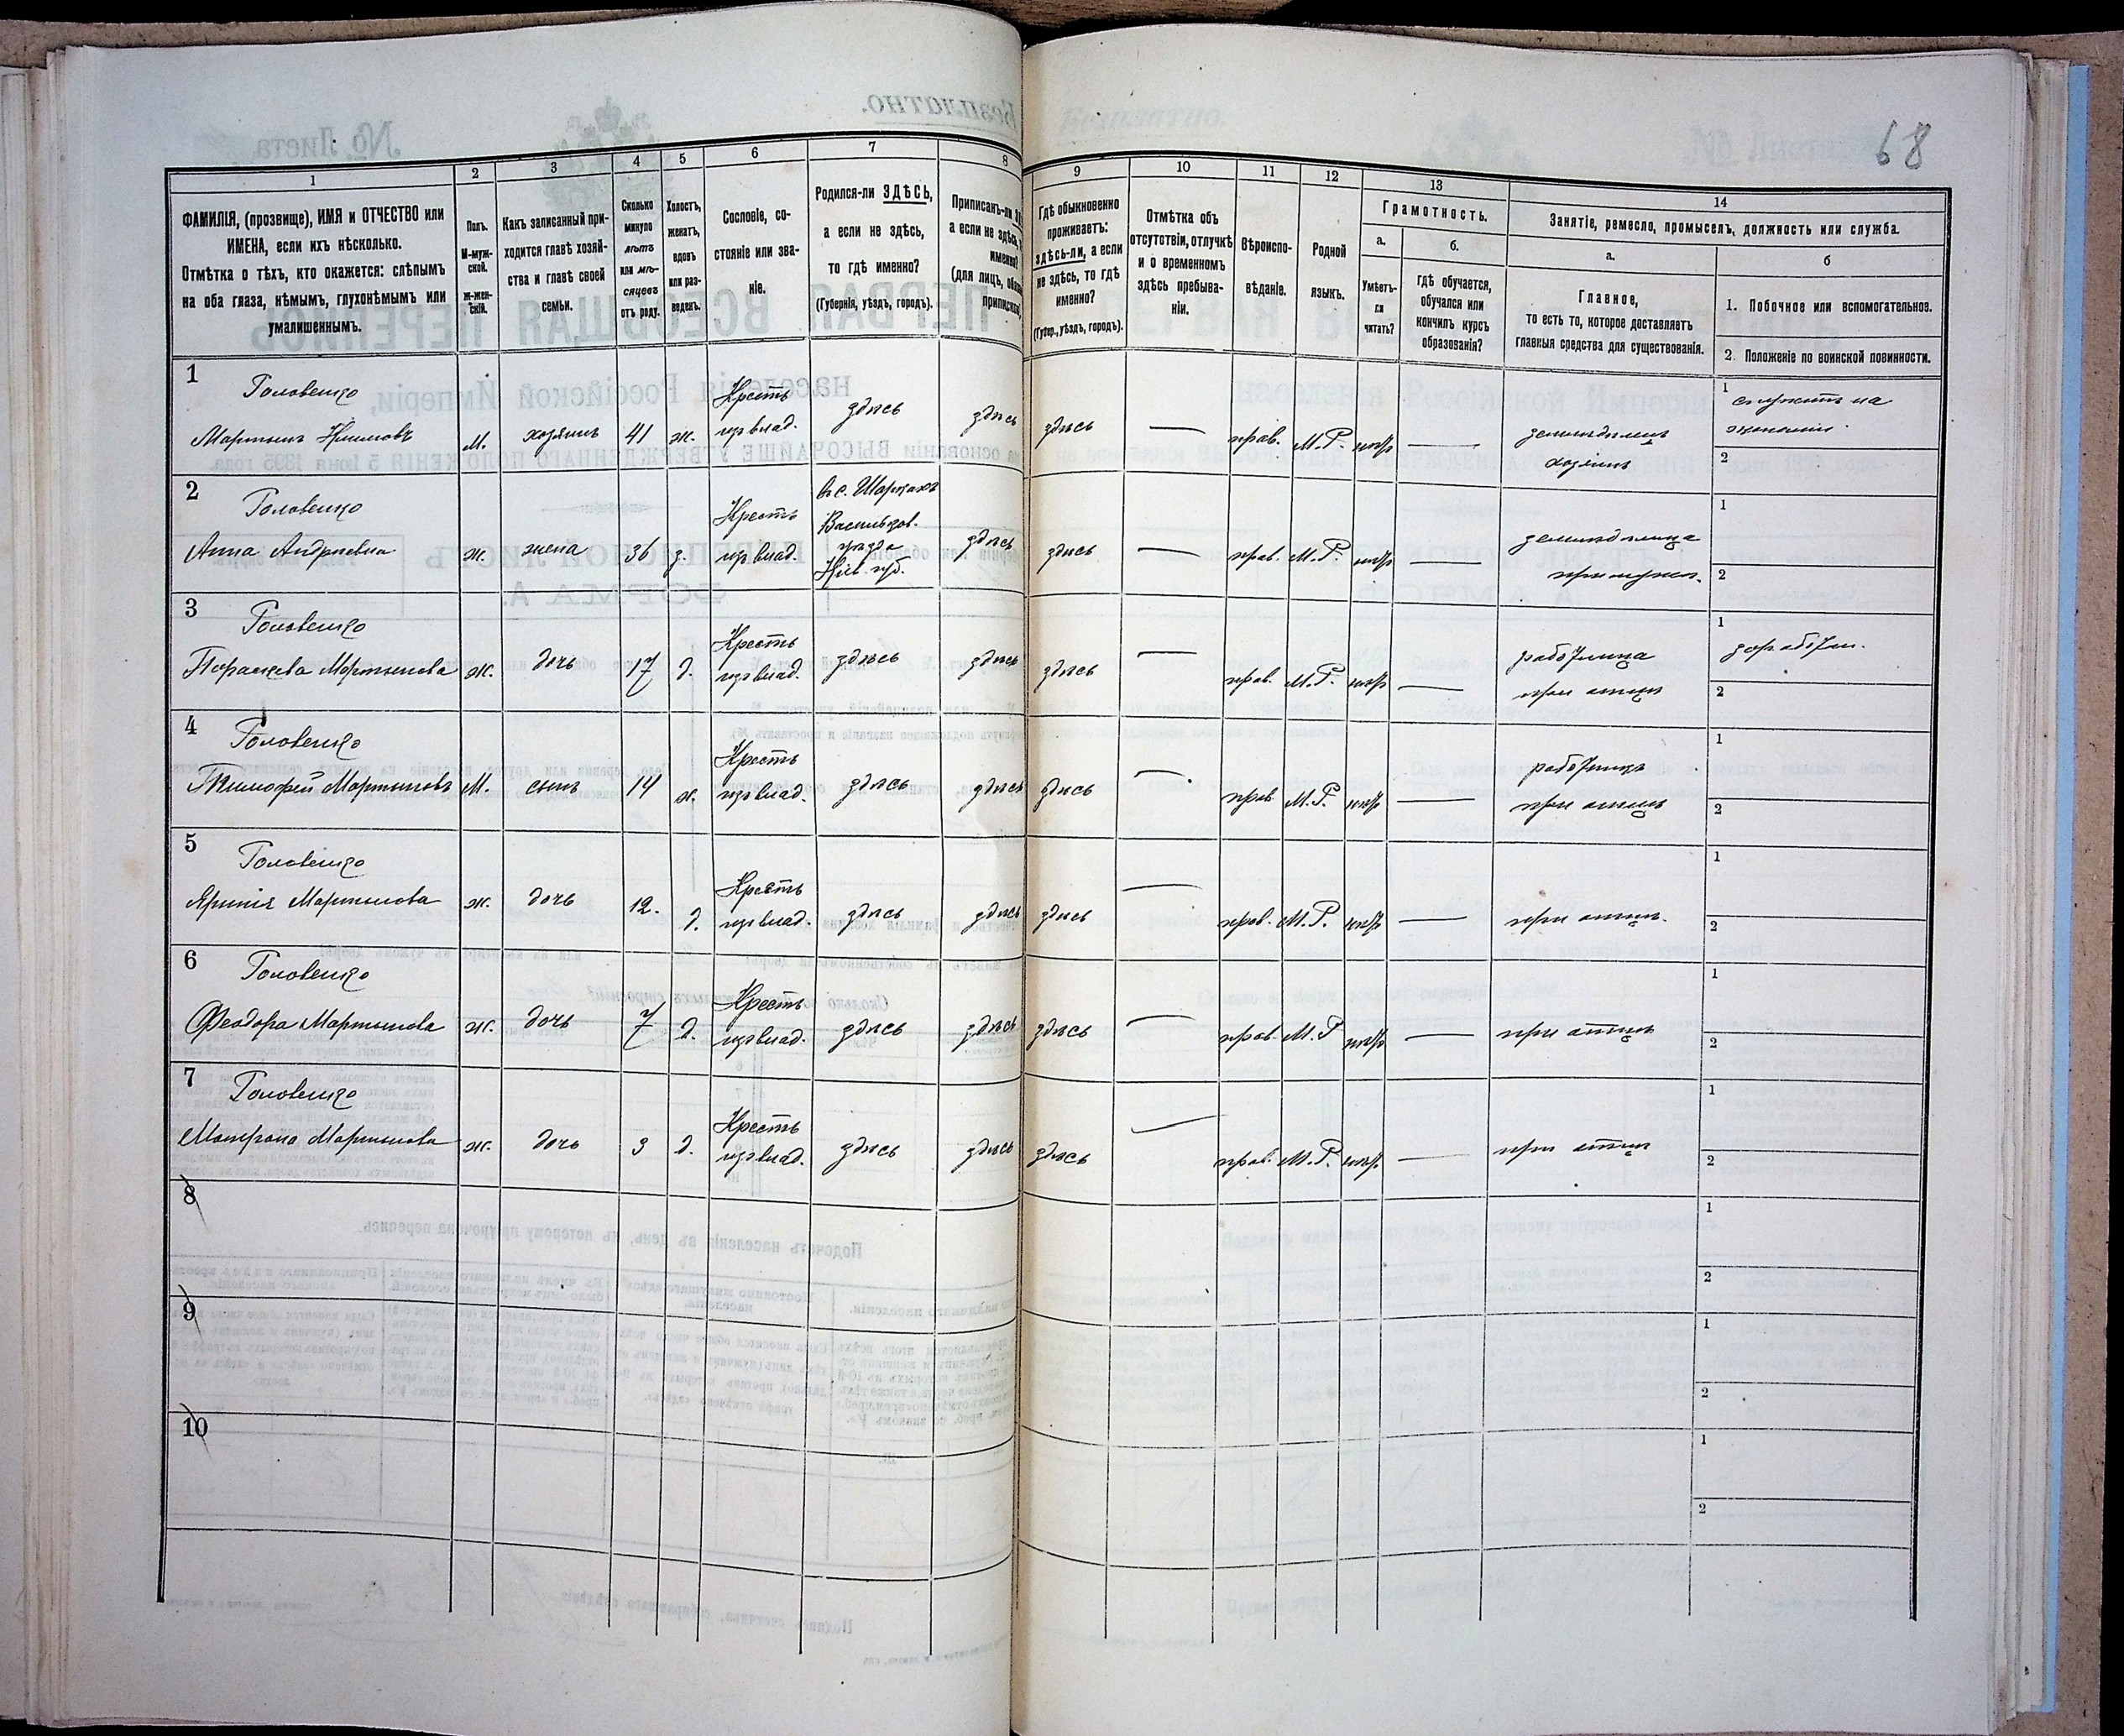 68
1 2 3 4 5 6 7 8 9 10 11 12 13 14
ФАМИЛІЯ, (прозвище), ИМЯ и ОТЧЕСТВО или
ИМЕНА, если ихъ нѣсколько.
Отмѣтка о тѣхъ, кто окажется: слѣпымъ
на оба глаза, нѣмымъ, глухонѣмымъ или
умалишеннымъ.
Полъ.
М-муж-
ской.
Ж-жен-
скій.
Какъ записанный при-
ходится главѣ хозяй-
ства и главѣ своей
семьи.
Сколько
минуло
лѣтъ
или мѣ-
сяцевъ
отъ роду.
Холостъ,
женатъ,
вдовъ
или раз-
веденъ.
Сословіе, со-
стояніе или зва-
ніе.
Родился-ли ЗДѢСЬ,
а если не здѣсь,
то гдѣ именно?
(Губернія, уѣздъ, городъ).
Приписанъ-ли
а если не здѣсь,
именно?
(для лицъ,
Гдѣ обыкновенно
проживаетъ:
здѣсь-ли, а если
не здѣсь, то гдѣ
именно?
(Губер., уѣздъ, городъ).
Отмѣтка объ
отсутствіи, отлучкѣ
и о временномъ
здѣсь пребыва-
ніи.
Вѣроиспо-
вѣданіе.
Родной
языкъ.
Грамотность.
а.
Умѣетъ-
ли
читать?
б.
Гдѣ обучается,
обучался или
кончилъ курсъ
образованія?
Занятіе, ремесло, промыселъ, должность или служба.
а.
Главное,
то есть то, которое доставляетъ
главныя средства для существованія.
б
1. Побочное или вспомогательное.
2. Положеніе по воинской повинности.
1 Головенко
Мартынъ Климовъ М. хозяинъ 41 ж. Крестъ
изъ влад. здѣсь здѣсь здѣсь — прав. М.Р. —
земледѣлецъ
хозяинъ
1 служитъ на
экономіи.
2
2 Головенко
Анна Андреевна ж. жена 36 з. Крестъ
изъ влад.
въ с.
Васильков.
уѣзда
Кіев. губ.
здѣсь здѣсь — прав. М.Р. —
земледѣлица
при мужѣ.
1
2
3 Головенко
Параскева Мартынова ж. дочь 17 д. Крестъ
изъ влад. здѣсь здѣсь здѣсь — прав. М.Р. —
работница
при отцѣ
1
2
4 Головенко
Тимофей Мартыновъ М. сынъ 14 х. Крестъ
изъ влад. здѣсь здѣсь здѣсь — прав. М.Р. —
работникъ
при отцѣ
1
2
5 Головенко
Яринія Мартынова ж. дочь 12. д. Крестъ
изъ влад. здѣсь здѣсь здѣсь — прав. М.Р. —
при отцѣ.
1
2
6 Головенко
Феодора Мартынова ж. дочь 7 д. Крестъ
изъ влад. здѣсь здѣсь здѣсь — прав. М.Р —
при отцѣ
1
2
7 Головенко
Матрона Мартынова ж. дочь 3 д. Крестъ
изъ влад. здѣсь здѣсь здѣсь — прав. М.Р. —
при отцѣ
1
2
8
1
2
9
1
2
10
1
2